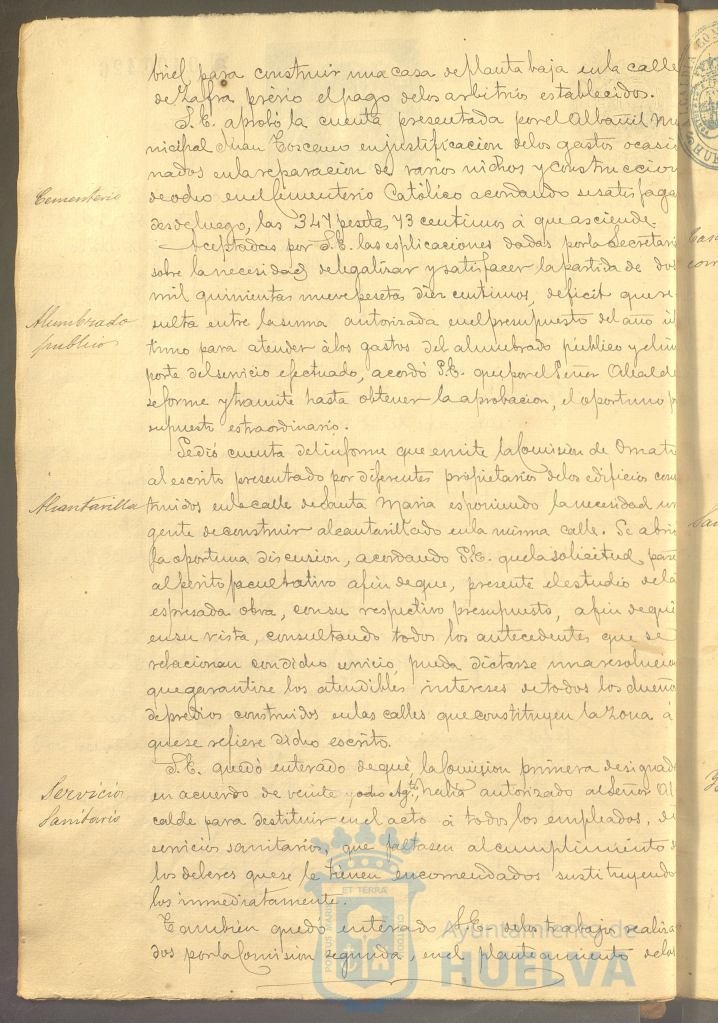 briel para construir una casa de planta baja en la calle
de Zafra prévio el pago de los arbitrios establecidos.
S.E. aprobó la cuenta presentada por el Albañil Mu
nicipal Juan Toscano en justificacion de los gastos ocasio
nados en la reparacion de varios nichos y construccion
Cementerio
de ocho en el Cementerio Católico acordando se satisfaga
desde luego, las 347 pesetas 73 centimos á que asciende.
Aceptadas por S.E. las esplicaciones dadas por la Secretari
sobre la necesidad de legalizar y satisfacer la partida de dos
mil quinientas nueve pesetas diez centimos, deficit que re
Alumbrado
público
sulta entre la suma autorizada en el presupuesto del año úl
timo para atender á los gastos del alumbrado público y el im
porte del servicio efectuado, acordó S.E. que por el Señor Alcalde
se forme y tramite hasta obtener la aprobacion, el oportuno p
supuesto estraordinario.
Se dió cuenta del informe que emite la Comision de Ornato
al escrito presentado por diferentes propietarios de los edificios cons
Alcantarilla
truidos en la calle de Santa Maria esponiendo la necesidad ur
gente de construir alcantarillado en la misma calle. Se abrió
la oportuna discusion, acordando S.E. que la solicitud pase
al périto facultativo a fin de que, presente el estudio de la
espresada obra, con su respectivo presupuesto, a fin de que
en su vista, consultando todos los antecedentes que se
relacionan con dicho servicio, pueda dictarse una resolucion
que garantize los atendibles intereses de todos los dueños
de predios construidos en las calles que constituyen la zona á
que se refiere dicho escrito.
S.E. quedó enterado de que la Comision primera designada
Servicio
Sanitario
en acuerdo de veinte Agto, habia autorizado al Señor Al
calde para destituir en el acto á todos los empleados, de
servicios sanitarios, que faltasen al cumplimiento de
los deberes que se le tienen encomendados sustituyendo
los inmediatamente.
Tambien quedó enterado S.E. de los trabajos realiza
dos por la Comision segunda, en el planteamiento de los
PORTUS MARIS
ET TERRÆ
CUSTODIA
Ayuntamiento de
HUELVA